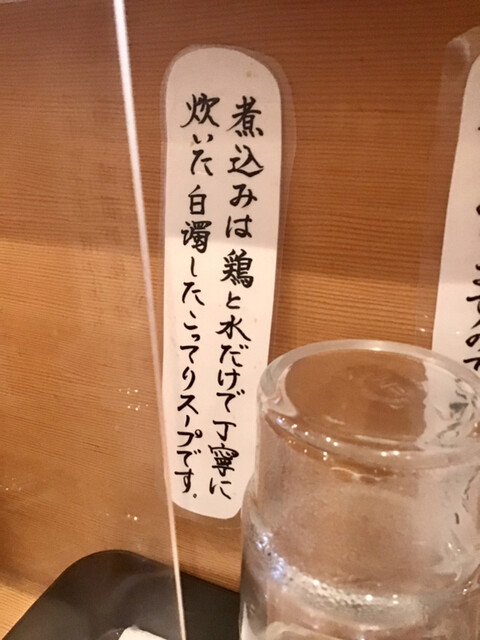 煮込みは鶏と水だけで丁寧に
炊いた白濁したこってりスープです。